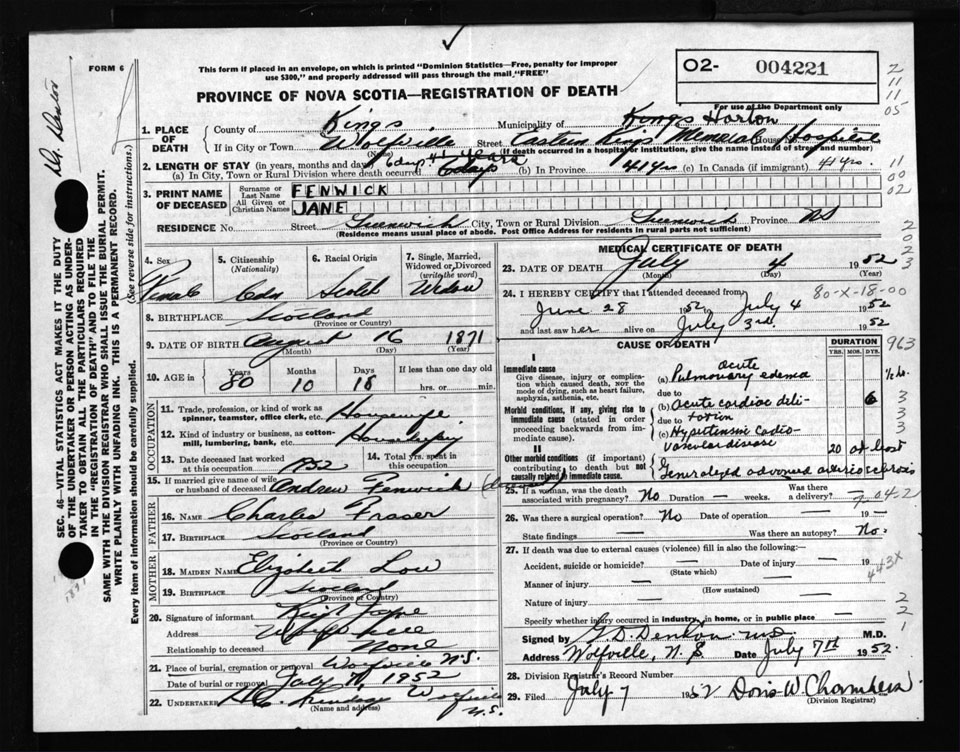 FORM 6
This form if placed in an envelope, on which is printed "Dominion Statistics—Free, penalty for improper
use $300," and properly addressed will pass through the mail "FREE"
PROVINCE OF NOVA SCOTIA—REGISTRATION OF DEATH
O2- 004221
For use of the Department only
2
11
11
05
11
00
02
2023
1. PLACE OF DEATH
County of Kings Municipality of Kings Horton
If in City or Town Wolfville Street Eastern Kings Memorial House Hospital
(Name) (If death occurred in a hospital or institution, give the name instead of street and number)
2. LENGTH OF STAY (in years, months and days) 6 days 41 years
(a) In City, Town or Rural Division where death occurred 6 days (b) In Province 41 yrs (c) In Canada (if immigrant) 41 yrs.
3. PRINT NAME OF DECEASED
Surname or Last Name FENWICK
All Given or Christian Names JANE
RESIDENCE No. Street Greenwich City, Town or Rural Division Greenwich Province NS
(Residence means usual place of abode. Post Office Address for residents in rural parts not sufficient)
4. Sex Female
5. Citizenship (Nationality) Cdn
6. Racial Origin Scotch
7. Single, Married, Widowed or Divorced (write the word) Widow
8. BIRTHPLACE Scotland
(Province or Country)
9. DATE OF BIRTH August 16 1871
(Month) (Day) (Year)
10. AGE in Years 80 Months 10 Days 18 If less than one day old hrs. or min.
OCCUPATION
11. Trade, profession, or kind of work as spinner, teamster, office clerk, etc. Housewife
12. Kind of industry or business, as cotton-mill, lumbering, bank, etc. Housekeeping
13. Date deceased last worked at this occupation 1952
14. Total yrs. spent in this occupation
15. If married give name of wife or husband of deceased Andrew Fenwick (deceased)
FATHER
16. NAME Charles Fraser
17. BIRTHPLACE Scotland
(Province or Country)
MOTHER
18. MAIDEN NAME Elizabeth Low
19. BIRTHPLACE Scotland
(Province or Country)
20. Signature of informant
Address Wolfville
Relationship to deceased None
21. Place of burial, cremation or removal Wolfville N.S.
Date of burial or removal July 1952
22. UNDERTAKER Wolfville
(Name and address) N.S.
MEDICAL CERTIFICATE OF DEATH
23. DATE OF DEATH July 4 1952
(Month) (Day)
24. I HEREBY CERTIFY that I attended deceased from 80-X-18-00
June 28 1952 to July 4 1952
and last saw her alive on July 3rd. 1952
CAUSE OF DEATH DURATION
YRS. MOS. DYS.
963
I
Immediate cause
Give disease, injury or complication which caused death, not the mode of dying, such as heart failure, asphyxia, asthenia, etc.
(a) acute Pulmonary edema 1/2 ho.
due to
Morbid conditions, if any, giving rise to immediate cause (stated in order proceeding backwards from immediate cause).
(b) Acute cardiac dilitation 6
due to
(c) Hypertensive Cardiovascular disease 20 at least
3
3
3
3
II
Other morbid conditions (if important) contributing to death but not causally related to immediate cause.
Generalized advanced arteriosclerosis
25. If a woman, was the death associated with pregnancy? No Duration — weeks. Was there a delivery? —
26. Was there a surgical operation? No Date of operation — 19—
State findings — Was there an autopsy? No.
27. If death was due to external causes (violence) fill in also the following:—
Accident, suicide or homicide? — Date of injury — 19
(State which)
443X
Manner of injury —
(How sustained)
Nature of injury —
Specify whether injury occurred in industry, in home, or in public place
2
2
1
Signed by G. D. Denton M.D. M.D.
Address Wolfville, N. S. Date July 7th 1952.
28. Division Registrar's Record Number
29. Filed July 7 1952 Doris W. Chambers
(Division Registrar)
SEC. 46—VITAL STATISTICS ACT MAKES IT THE DUTY
OF THE UNDERTAKER OR PERSON ACTING AS UNDERTAKER TO OBTAIN ALL THE PARTICULARS REQUIRED
IN THE "REGISTRATION OF DEATH" AND TO FILE THE
SAME WITH THE DIVISION REGISTRAR WHO SHALL ISSUE THE BURIAL PERMIT.
WRITE PLAINLY WITH UNFADING INK. THIS IS A PERMANENT RECORD.
Every item of information should be carefully supplied. (See reverse side for instructions.)